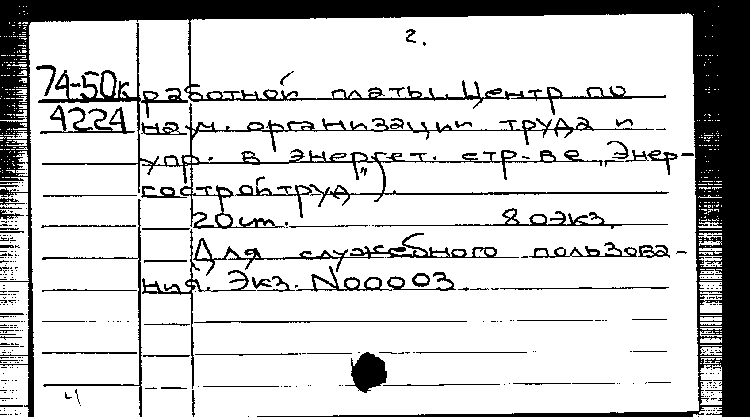 2.
74-50к работной платы. Центр по
4224 науч. организации труда и
упр. в энергет. стр-ве „Энер-
гостройтруд").
20 см. 80 экз.
Для служебного пользова-
ния. Экз. N00003.